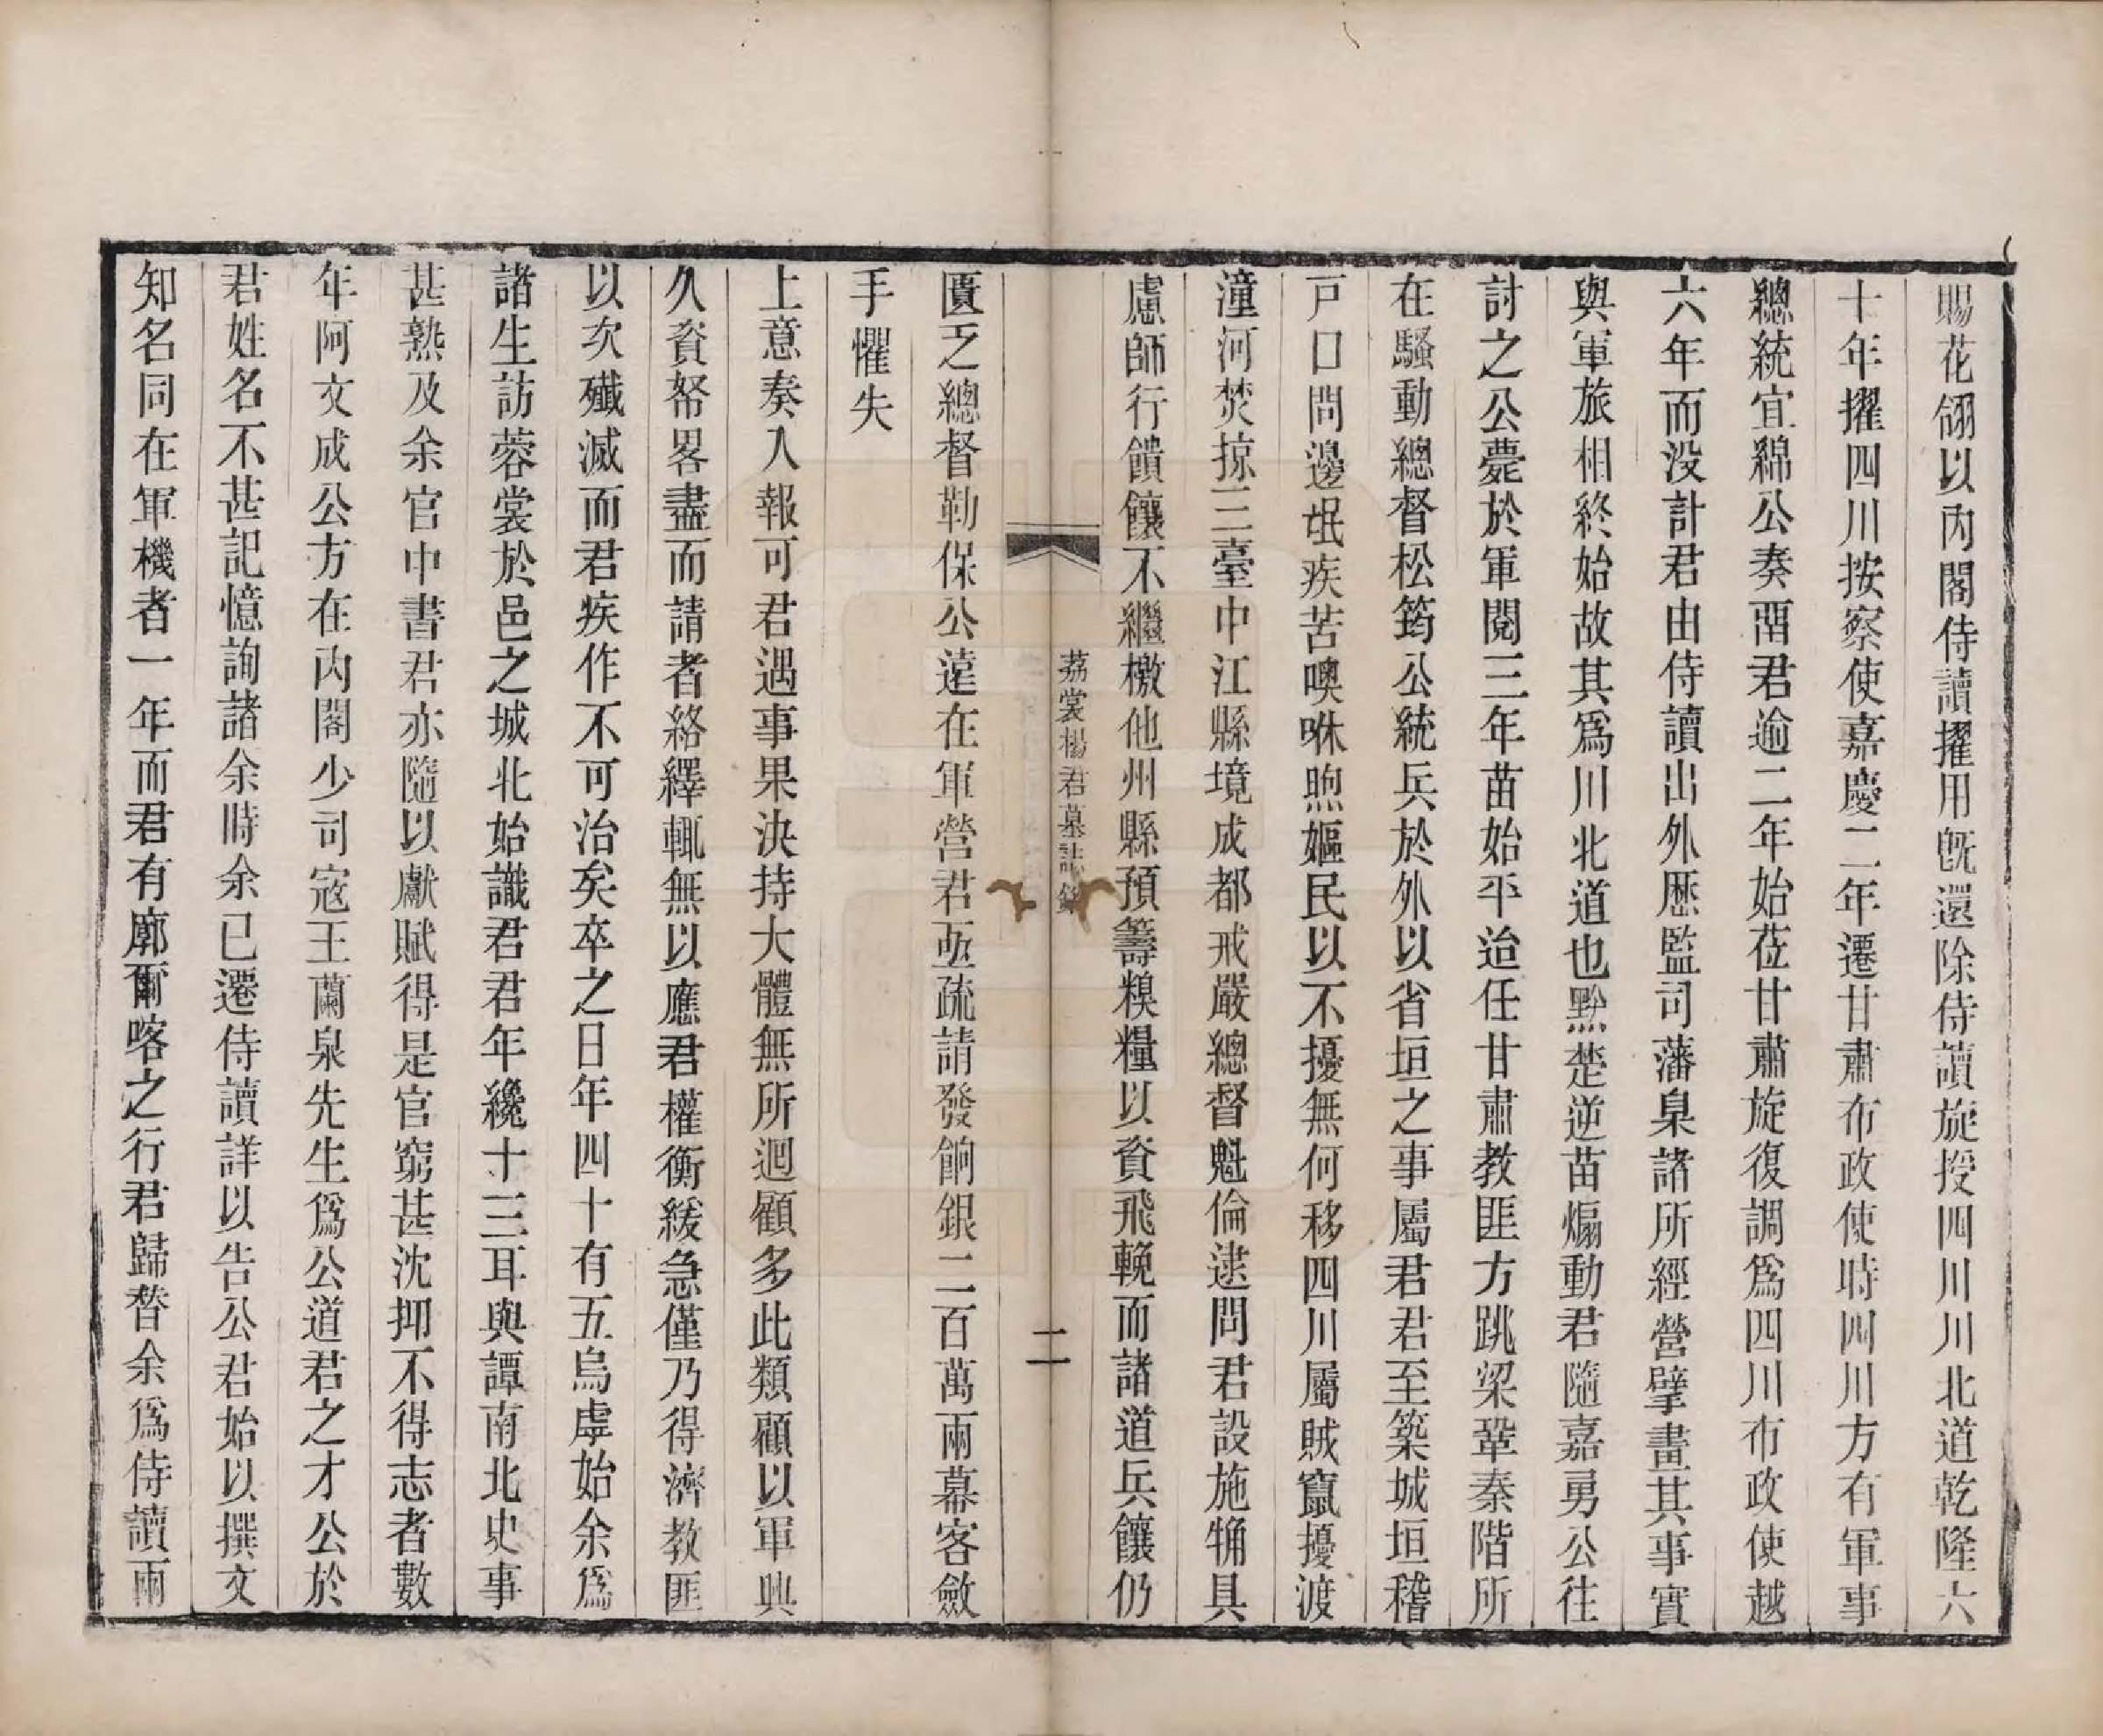 賜花翎以內閣侍讀擢用旣還除侍讀旋授四川川北道乾隆六
十年擢四川按察使嘉慶二年遷甘肅布政使時四川方有軍事
總統宜綿公奏畱君逾二年始莅甘肅旋復調爲四川布政使越
六年而没計君由侍讀出外歷監司藩臬諸所經營擘畫其事實
與軍旅相終始故其爲川北道也黔楚逆苗煽動君隨嘉勇公往
討之公薨於軍閱三年苗始平迨任甘肅教匪方跳梁鞏秦階所
在騷動總督松筠公統兵於外以省垣之事屬君君至築城垣稽
戸口問邊氓疾苦噢咻煦嫗民以不擾無何移四川屬賊竄擾渡
潼河焚掠三臺中江縣境成都戒嚴總督魁倫逮問君設施觕具
慮師行饋饟不繼檄他州縣預籌糗糧以資飛輓而諸道兵饟仍
荔裳楊君墓誌銘
二
匱乏總督勒保公遠在軍營君亟疏請發餉銀二百萬兩幕客斂
手懼失
上意奏入報可君遇事果決持大體無所迴顧多此類顧以軍興
久資帑畧盡而請者絡繹輒無以應君權衡緩急僅乃得濟教匪
以次殲滅而君疾作不可治矣卒之日年四十有五烏虖始余爲
諸生訪蓉裳於邑之城北始識君君年纔十三耳與譚南北史事
甚熟及余官中書君亦隨以獻賦得是官窮甚沈抑不得志者數
年阿文成公方在內閣少司寇王蘭泉先生爲公道君之才公於
君姓名不甚記憶詢諸余時余已遷侍讀詳以告公君始以撰文
知名同在軍機者一年而君有廓爾喀之行君歸朁余爲侍讀兩